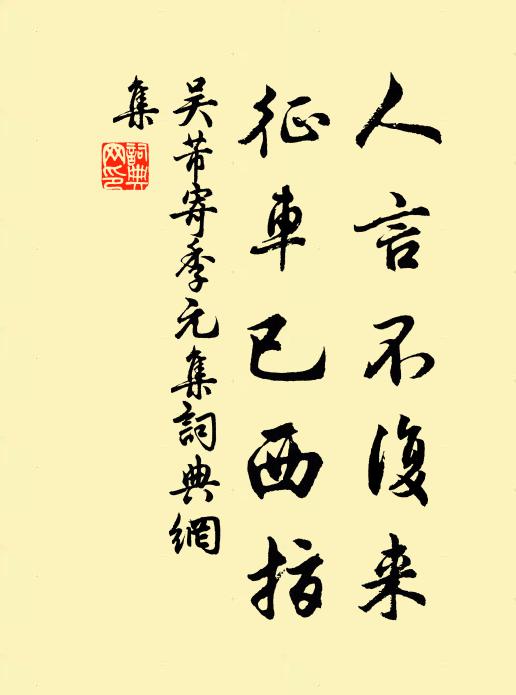 人言不復来
征車已西指
吴芾寄季元集詞典網
集
詞典網印